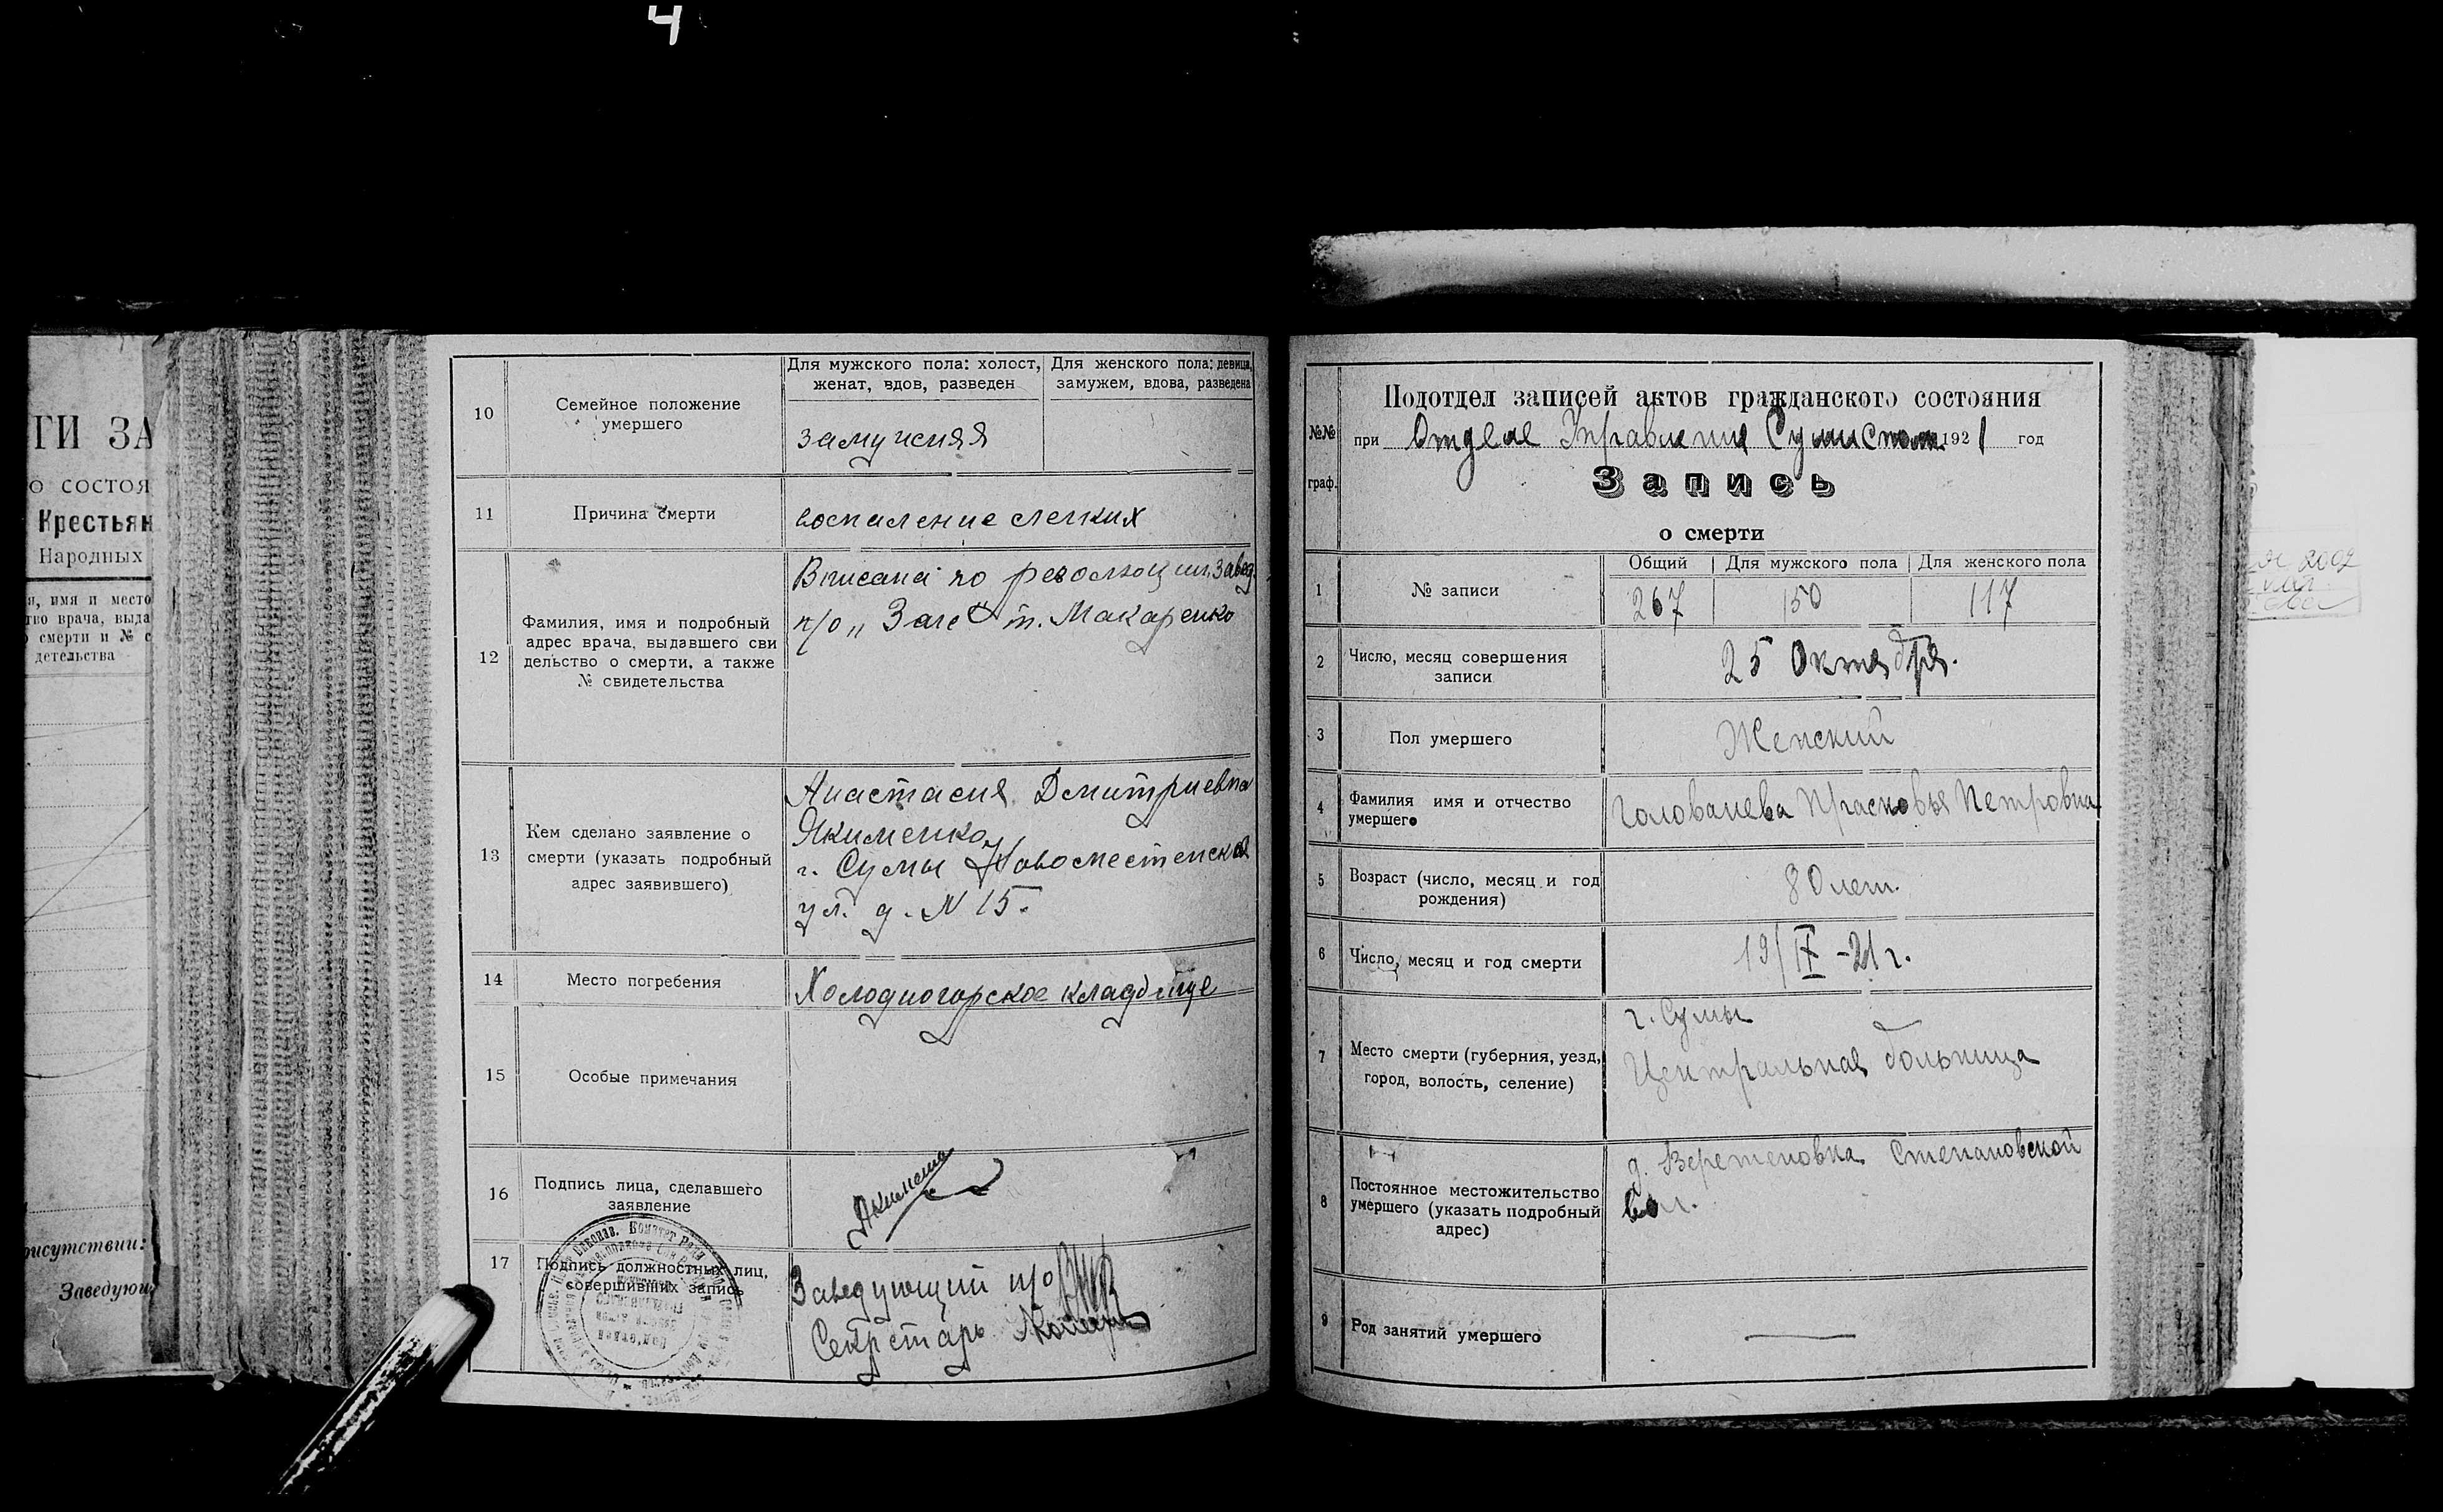 4
ГИ ЗА
о состоя
Крестьян
Народных
я, имя и место
тво врача, выда
смерти и № с
детельства
рисутствии:
Заведующ
10
Семейное положение
умершего
Для мужского пола: холост,
женат, вдов, разведен
Для женского пола: девица,
замужем, вдова, разведена
замужняя
11
Причина смерти
воспаление легких
12
Фамилия, имя и подробный
адрес врача, выдавшего сви
дельство о смерти, а также
№ свидетельства
Вписана по резолюции завед.
п/о „ Загс т. Макаренко
13
Кем сделано заявление о
смерти (указать подробный
адрес заявившего)
Анастасия Дмитриевна
Якименко
г. Сумы Новоместенская
ул. д. N 15.
14
Место погребения
Холодногорское кладбище
15
Особые примечания
16
Подпись лица, сделавшего
заявление
Якименко
17
Подпись должностных лиц,
совершивших запись
Заведующий п/о
Секретарь
Подотдел записей актов гражданского состояния
№№
граф.
при Отделе Управления 1921 год
Запись
о смерти
1
№ записи
Общий
Для мужского пола
Для женского пола
267
150
117
2
Число, месяц совершения
записи
25 Октября.
3
Пол умершего
Женский
4
Фамилия имя и отчество
умершего
Голованева Прасковья Петровна
5
Возраст (число, месяц и год
рождения)
80 лет.
6
Число, месяц и год смерти
19/IX-21 г.
7
Место смерти (губерния, уезд,
город, волость, селение)
г. Сумы
Центральная больница
8
Постоянное местожительство
умершего (указать подробный
адрес)
д. Веретеновка Степановской
вол.
9
Род занятий умершего
2002